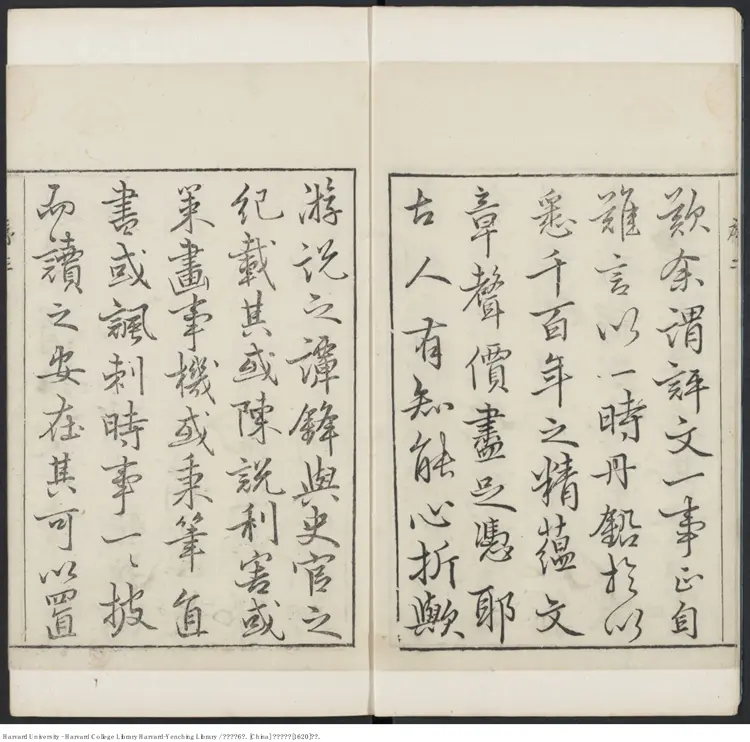 歟余謂評文一事正自
難言以一時丹鉛於以
悉千百年之精蘊文
章聲價盡足憑耶
古人有知能心折歟
序二
游説之譚鋒與史官之
紀載其或陳説利害或
策畫事機或秉筆直
書或諷刺時事一〻披
而讀之安在其可以置
序三
Harvard University - Harvard College Library Harvard-Yenching Library / ????6?. [China] ?????[1620]??.